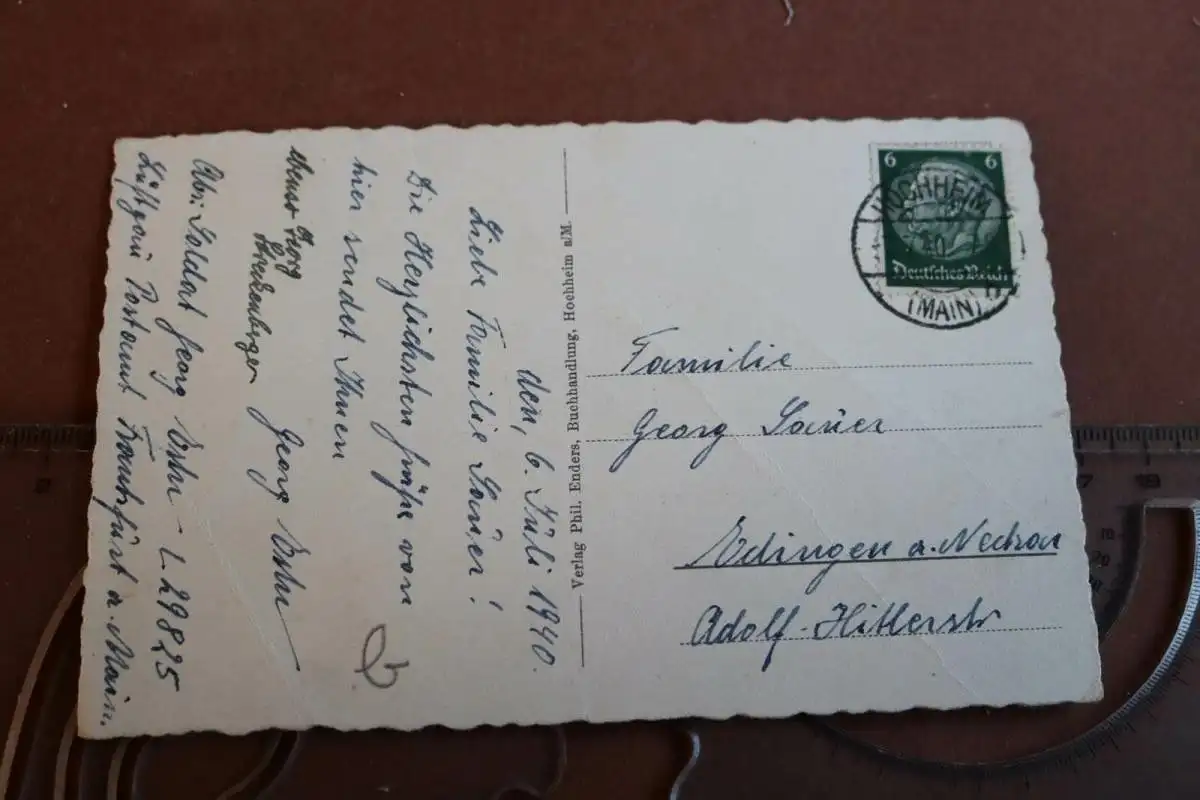 den, 6. Juli 1940.
Liebe Familie Sauer!
Die Herzlichsten Grüße von
hier sendet Ihnen
Georg
Georg
Abs: Soldat Georg - L 29825
Luftgau Postamt Frankfurt a. Main.
Verlag Phil. Enders, Buchhandlung, Hochheim a/M.
6 6
Deutsches Reich
HOCHHEIM
(MAIN)
Familie
Georg Sauer
Edingen a. Neckar
Adolf-Hitlerstr